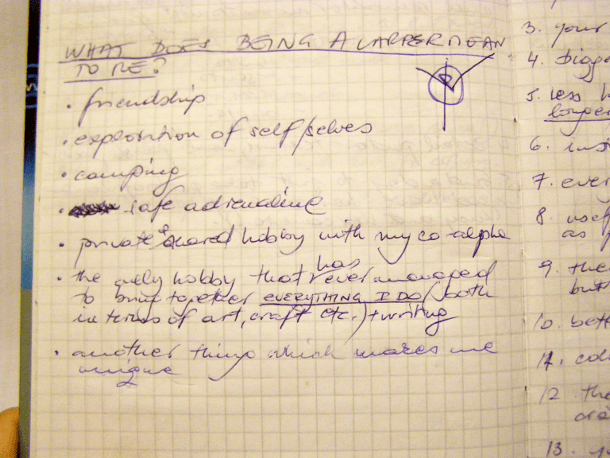 WHAT DOES BEING A LARPER MEAN
TO ME?
• friendship
• exploration of self/selves
• camping
• safe adrenaline
• private & shared hobby with my co-alpha
• the only hobby that has ever managed
to bring together EVERYTHING I DO (both
in terms of art, craft etc.) + writing
• another thing which makes me
unique
3. your
4. bigge
5. less h
longe
6. inst
7. ever
8. usef
as
9. the
but
10. bett
11. col
12 the
13.